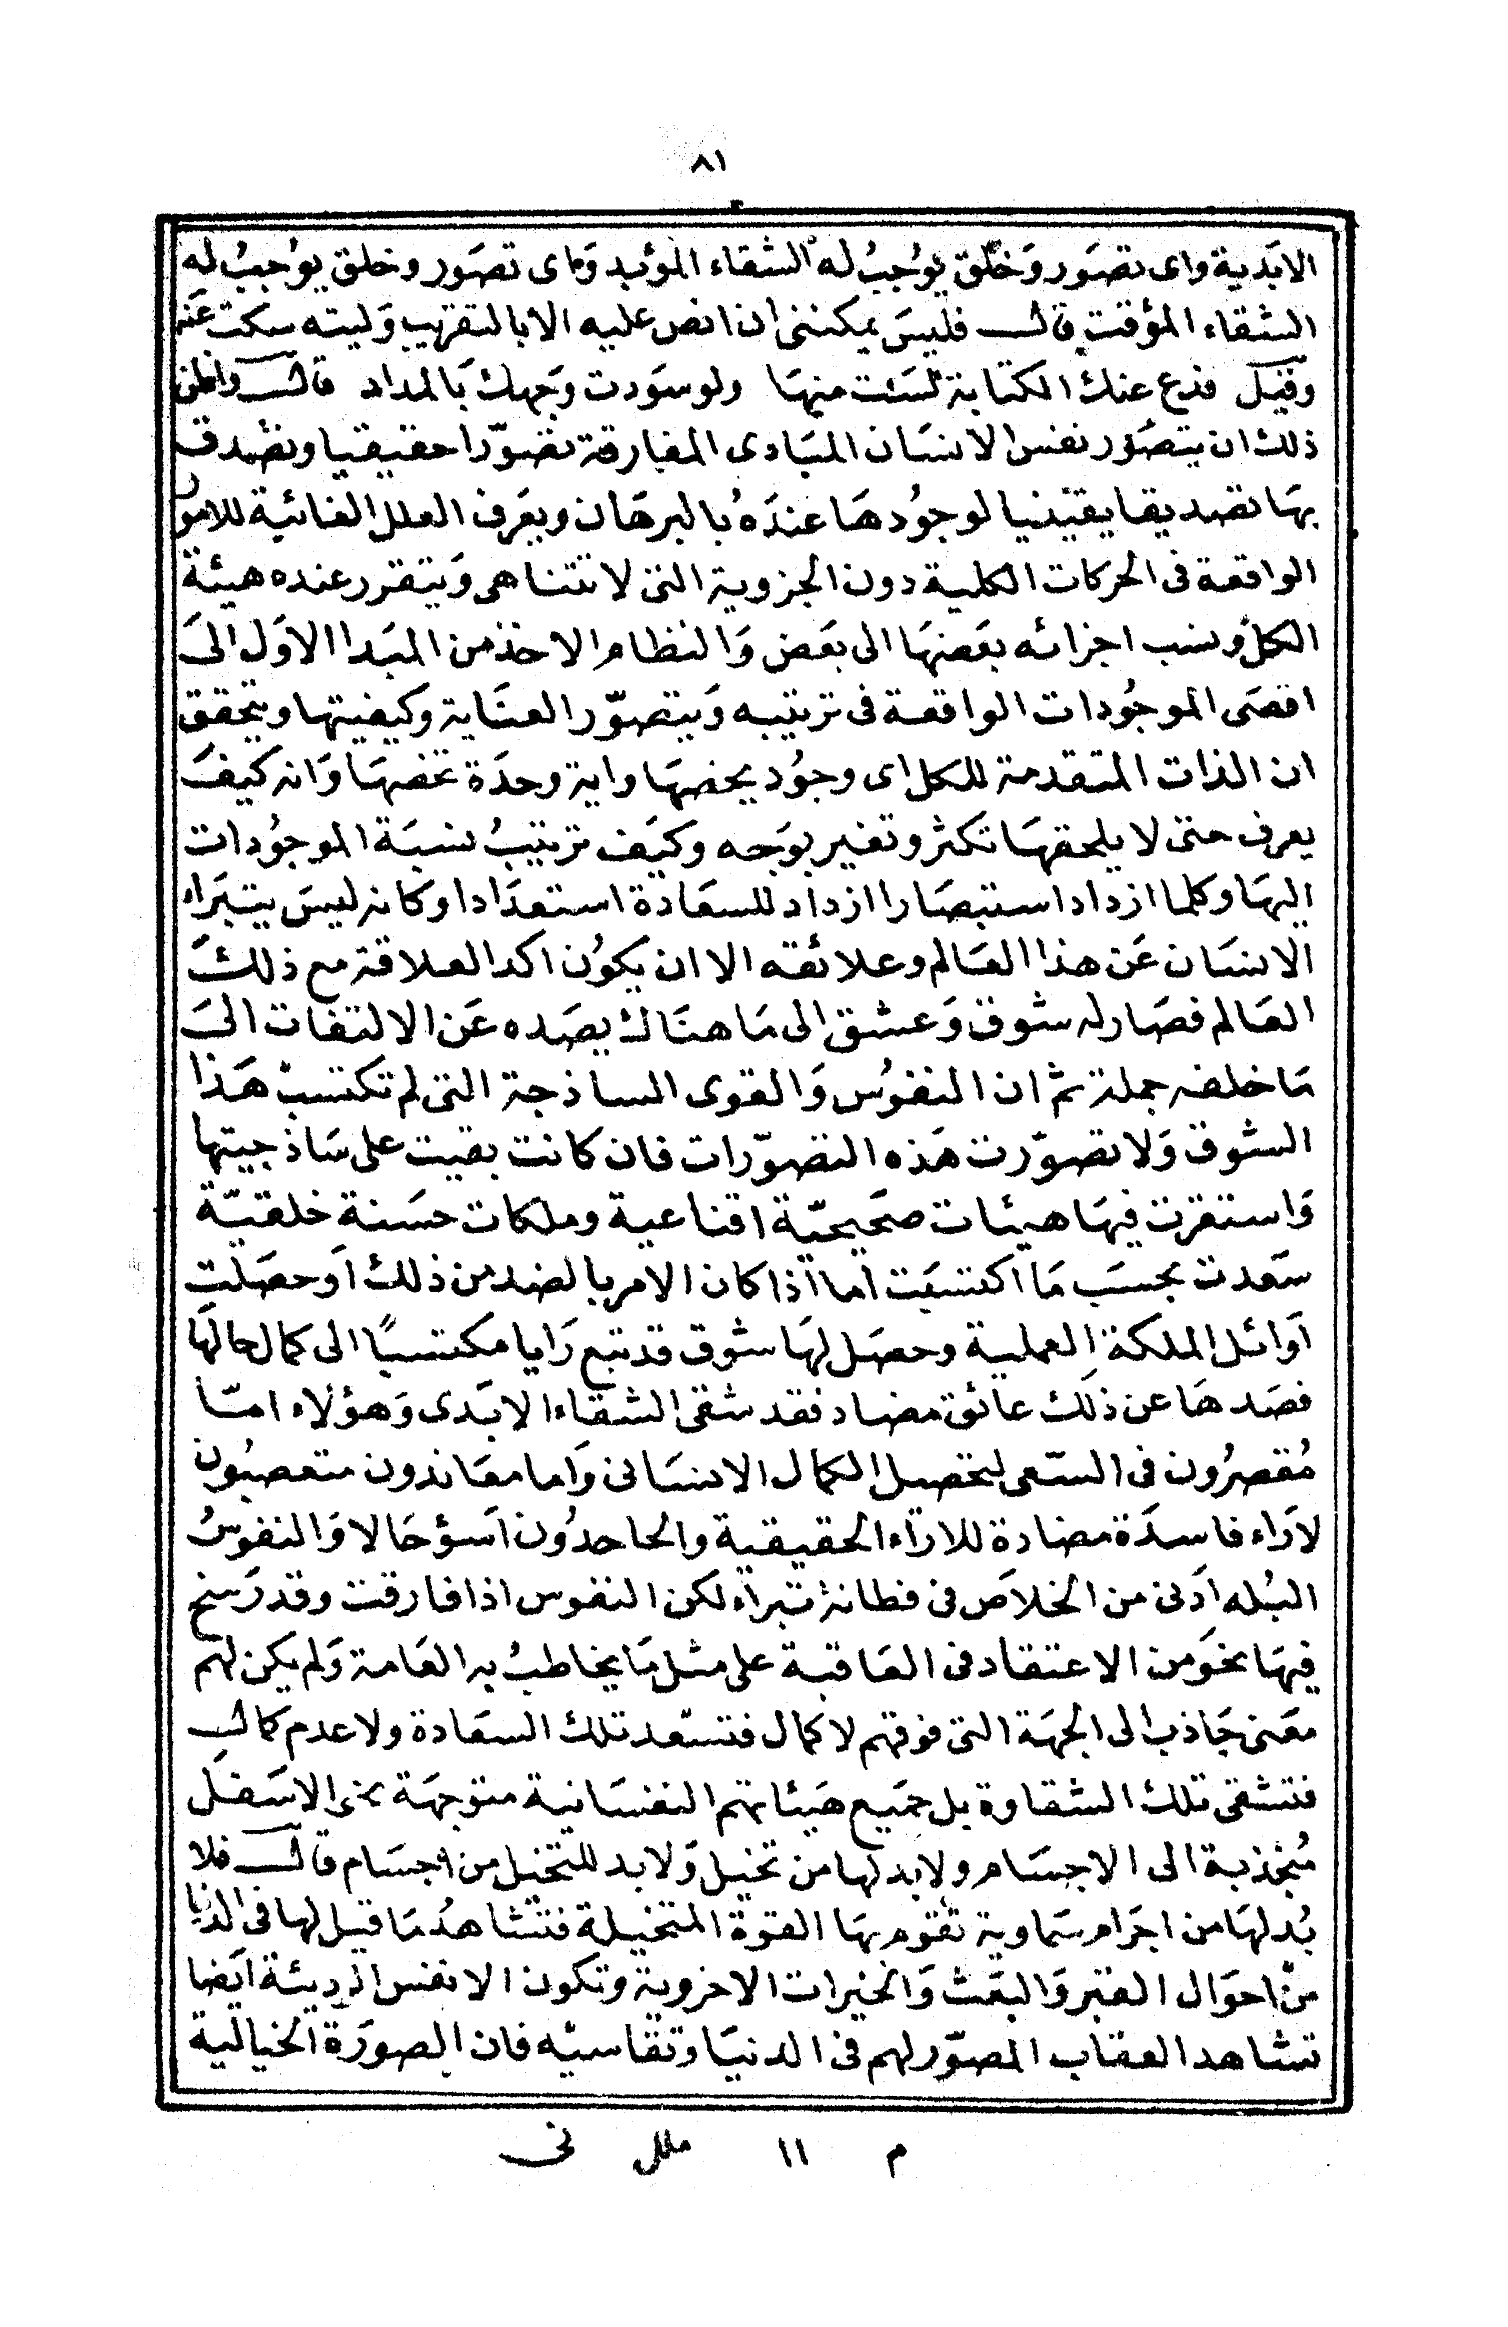 ٨١
الابَدية واى تصَور وَخلق يوُجبُ له الشقاء المؤبد وَماى تصَور وخلق يوُجبُ له
الشقاء المؤقت قالـــ فليسَ يمكننى ان انص عليه الا بالتقريب وَليته سكت عَنه
وَقيلَ فدع عنك الكتابة لسَت منهَا ولو سَودت وَجهك بَالمداد قالـــ واظن
ذلك ان يتصَور نفس الانسَان المبَادى المفارقة تصَوّرا حقيقيا وتصَدق
بهَا تصديقا يقينيا لوجوُدهَا عندَهُ بالبرهَان ويعَرف العلل الغائية للامور
الواقعة فى الحركات الكلية دون الجزوية التى لا تتناهى وَيتقرر عنده هيئة
الكل ونسب اجزائه بعَضهَا الى بعَض وَالنظام الاخذ من المبَدا الاوَل الىَ
اقصَى الموجوُدات الواقعة فى ترتيبه وَيتصوّر العنَاية وكيفيتها ويتحقق
ان الذات المتقدمة للكل اى وجوُد يخصهَا واية وحدَة تخصهَا وَانه كيفَ
يعرف حتى لا يلحقهَا تكثر وتغير بوَجه وكيَف ترتيبُ نسبَة الموجوُدات
اليهَا وكلما ازداد استبصَارا ازداد للسعَادة استعدَادا وكانه ليسَ يتبَراء
الانسَان عَن هذا العَالم وعلائقه الا ان يكوُن اكد العلاقة مع ذلكَ
العَالم فصَار له شوق وَعشق الى مَا هنَاك يصَده عَن الالتفات الىَ
مَا خلفه جملة ثم ان النفوُس وَالقوى الساذجة التى لم تكتسب هَذا
الشوق وَلا تصوّرت هَذه التصوّرات فان كانت بقيت على سَاذجيتها
وَاستقرت فيهَا هيئات صحَيحيّة اقناعية وملكات حسَنة خلقيّة
سَعدت بحسَب مَا اكتسبَت اما اذا كان الامر بالضد من ذلك اَو حصَلت
اوَائل الملكة العملية وحصَل لهَا شوق قد تبع رَايا مكتسبًا الى كمال حالهَا
فصَدهَا عن ذلك عائق مضاد فقد شقى الشقاء الابَدى وَهؤلاء امّا
مُقصرُون فى السّعى لتحصيل الكمال الانسَانى وَاما معَاندون متعصبُون
لاَراء فاسدَة مضادة للاراَء الحقيقية والجاحدُون اَسؤحَالا وَالنفوسُ
البُله ادَنى من الخلاَص فى فطانة تبراء لكن النفوس اذا فارقت وقد رَسخ
فيهَا نحَو من الاعتقاد فى العَاقبة على مثل مَا يخاطبُ به العَامة وَلم يكن لهم
معَنى جَاذب الى الجهَة التى فوقهم لا كمال فتسَعد تلك السعَادة ولا عدم كمالـــ
فتشقى تلك الشقاوة بل جمَيع هيَئاتهم النفسَانية متوجهَة نحو الاسَفلَ
مُنجذبة الى الاجسَام ولابد لها من تخيل وَلابد للتخيل من اجسَام قالـــ فلا
بُد لهَا من اجرَام سَماوية تقوم بهَا القوة المتخيلة فتشَاهدُ مَا قيل لها فى الدنيا
من احوَال القبر وَالبعَث وَالخيرات الاخروية وتكون الانفس الرديئة ايَضا
تشاهد العقاب المصوّر لهم فى الدنيَا وتقاسيه فان الصورَة الخيالية
م ١١ ملل نى